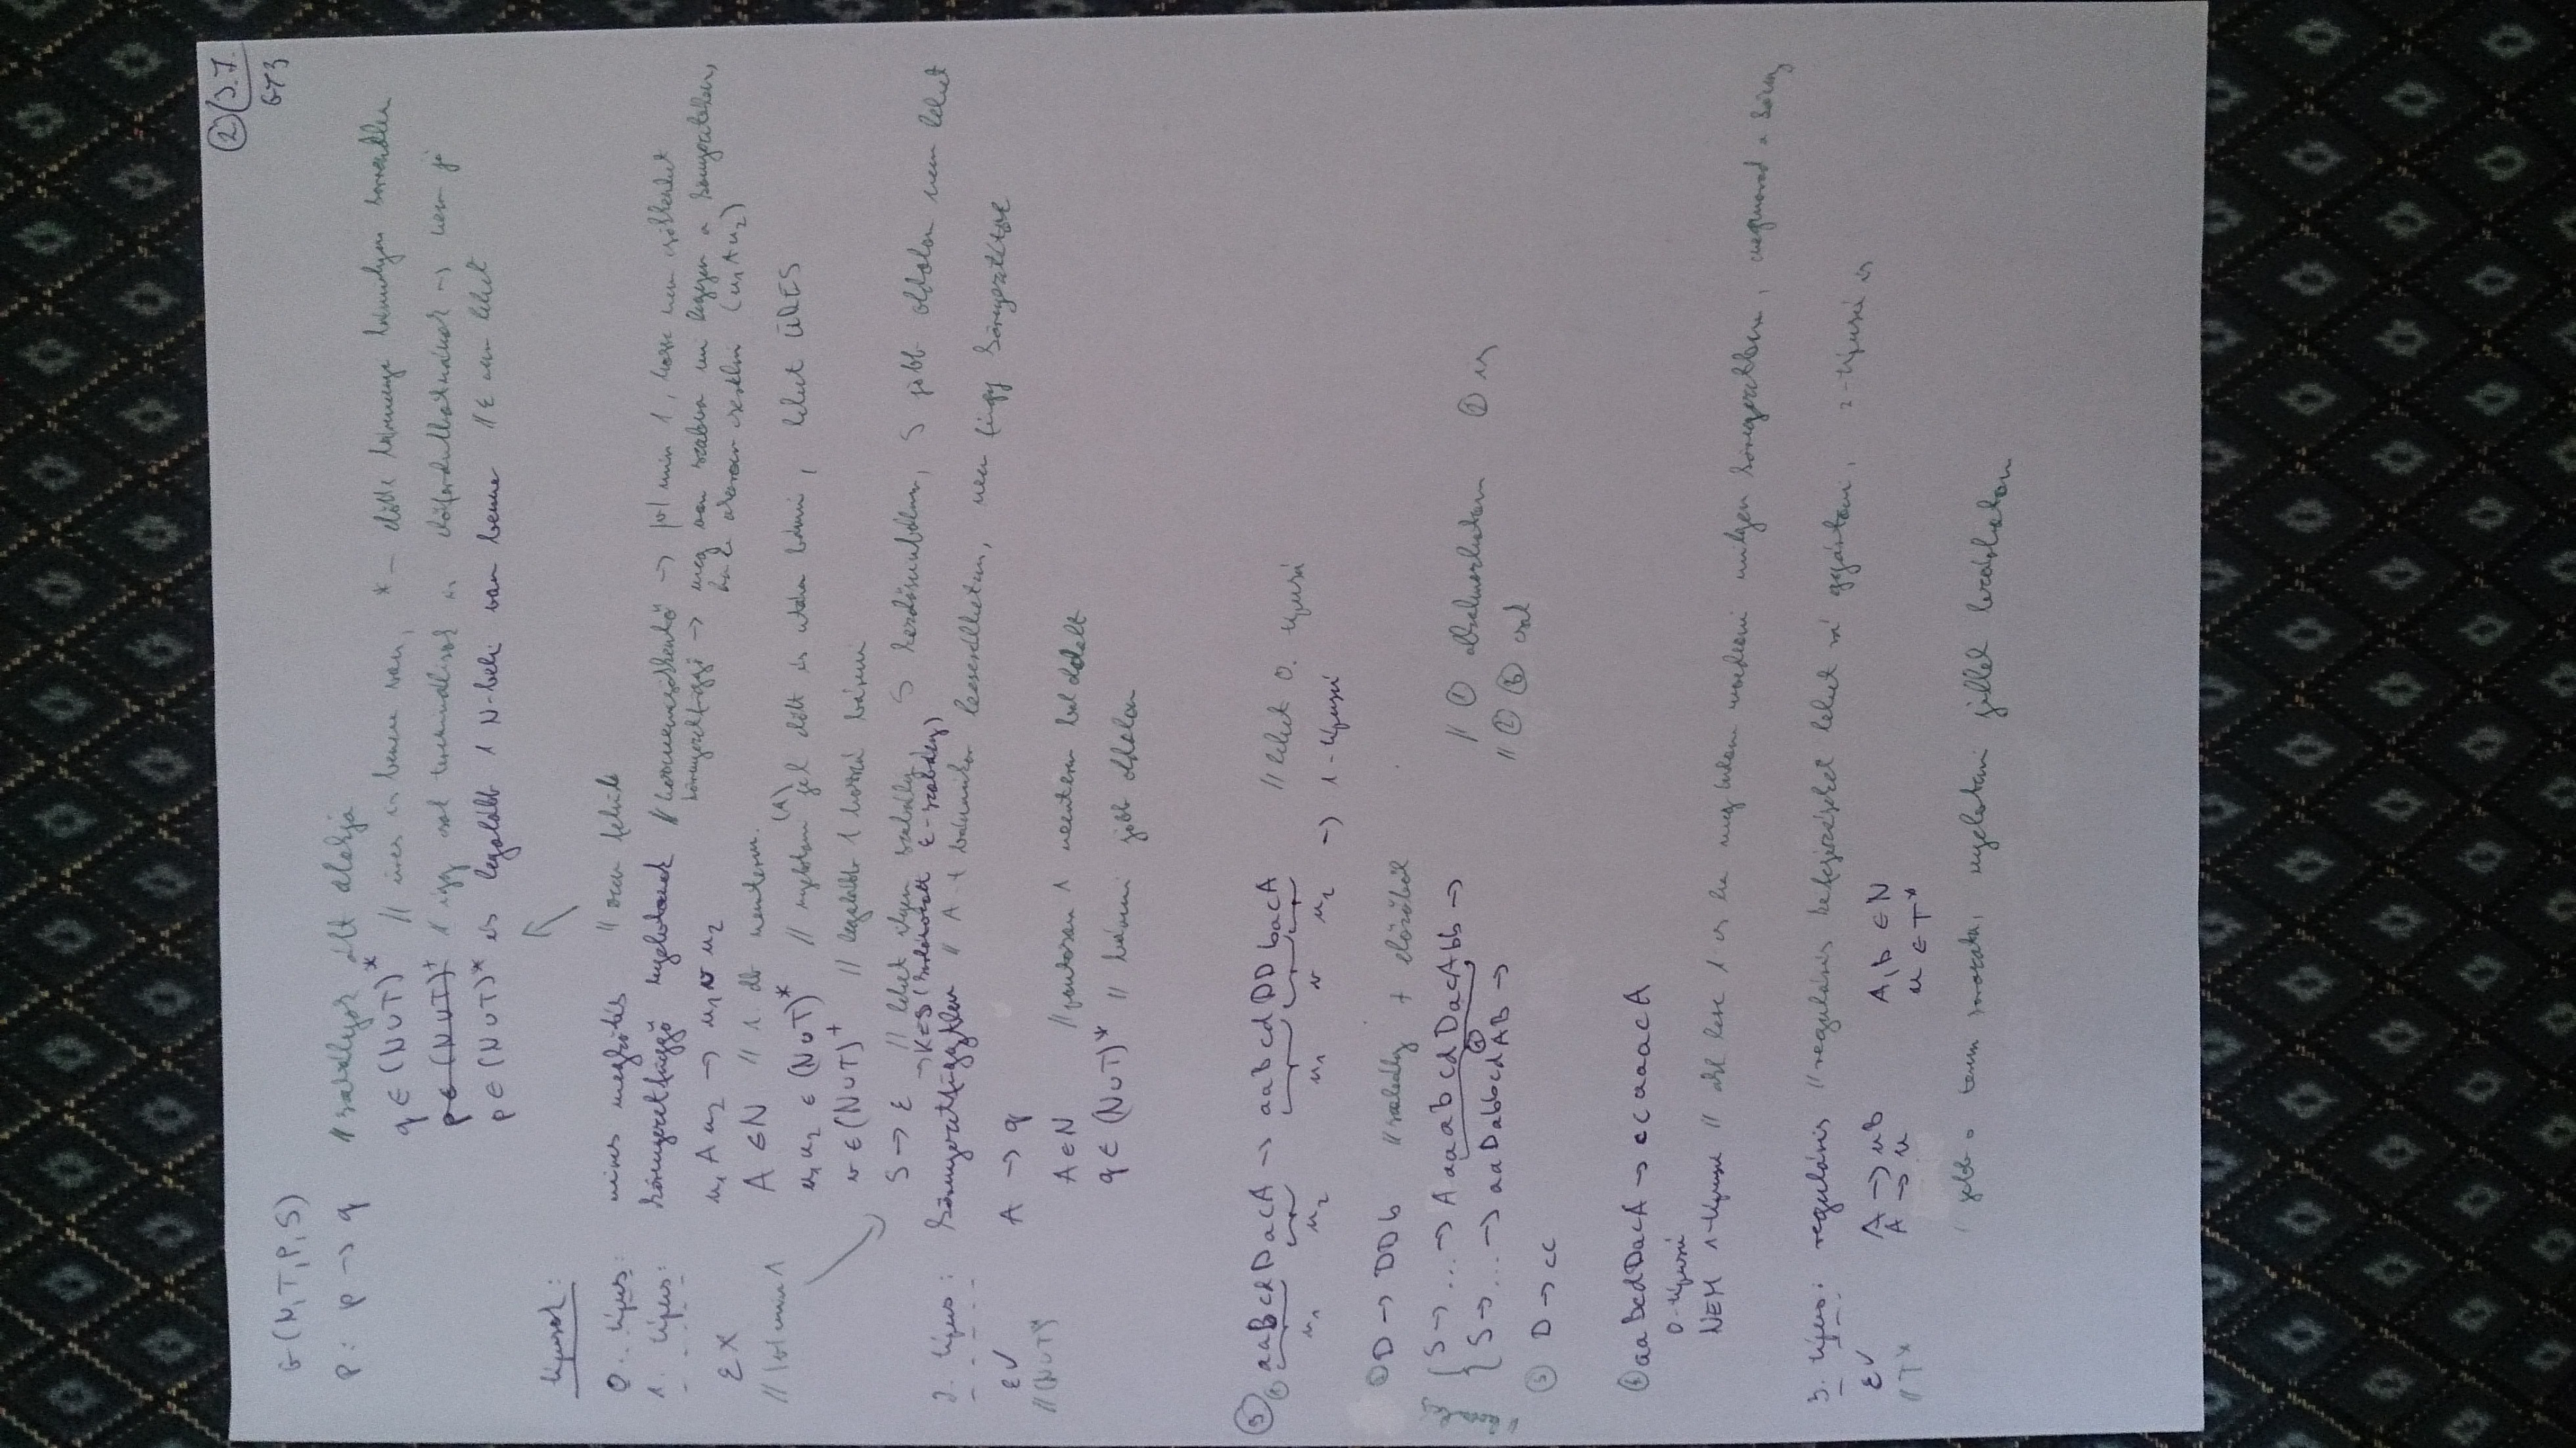 ② 3.7.
GY3
G(N,T,P,S)
P: p → q // szabályok ált alakja
q ∈ (N∪T)* // üres is benne van, * – előtte bármennyi bármilyen sorrendben
p ∈ (N∪T)⁺ // így csak terminálisok is előfordulhatnának → nem jó
p ∈ (N∪T)* és legalább 1 N-beli van benne // ε nem lehet
típusok:
0. típus: nincs megkötés // ezen felül
1. típus: környezetfüggő nyelvtanok // → |v| min 1, hossz nem csökkenhet
környezetfüggő → meg van szabva mi legyen a környezetében,
u₁ A u₂ → u₁ v u₂ (u₁Au₂)
ε X
A ∈ N // 1. db nemterm.
// |v| min 1
u₁ u₂ ∈ (N∪T)* // nyelvtani (A) jel előtt és után bármi, lehet ÜRES
v ∈ (N∪T)⁺ // legalább 1 hosszú bármi
S → ε // lehet ilyen szabály, S kezdőszimbólum, S jobb oldalon nem lehet
→ KES (korlátozott ε-szabály)
2. típus: környezetfüggetlen // A-t bármikor lecserélhetem, nem függ környezettől
ε ✓ A → q
// (N∪T)*
A ∈ N // pontosan 1 nemterm bal oldalt
q ∈ (N∪T)* // bármi jobb oldalon
③ ① aaBcdDacA → aaBcdDDbacA // lehet 0. típusú
u₁ u₂ u₁ v u₂ → 1-típusú
② D → DDb // szabály + előzőből
S → ... → AaaaBcdDacAbb → // ① alkalmazhatom ② is
S → ... → aaDabbcdAB → // ② ③ csak
③ D → cc
④ aaBcdDacA → ccaaacA
0-típusú
NEM 1-típusú // akk lesz 1 es ha meg tudom mondani milyen környezetben, megmarad a körny
3. típus: reguláris // reguláris kifejezéseket lehet rá gyártani, 2-típusú is
ε ✓ A → uB A, B ∈ N
// T* A → u u ∈ T*
jobb o term sorozata, nyelvtani jellel lezárhatom